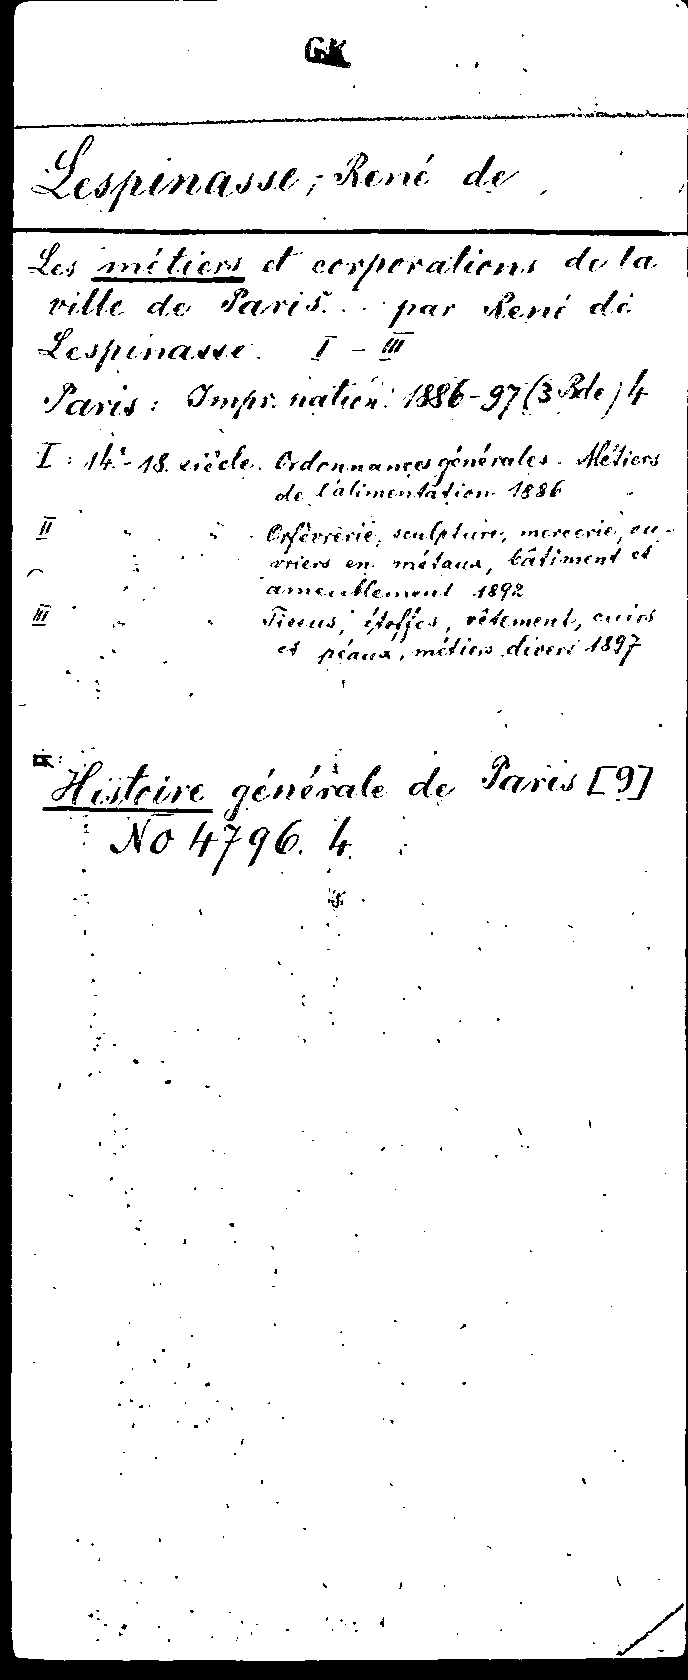 GK
Lespinasse, René de
Les métiers et corporations de la
ville de Paris... par René de
Lespinasse. I - III
Paris: Impr. nation. 1886-97 (3 Bde) 4
I: 14.-18. siècle. Ordonnances générales. Métiers
de l'alimentation 1886
II " " " Orfèvrerie, sculpture, mercerie, ou-
vriers en métaux, bâtiment et
ameublement 1892
III " " Tissus, étoffes, vêtement, cuirs
et peaux, métiers divers 1897
Histoire générale de Paris [9]
No 4796. 4